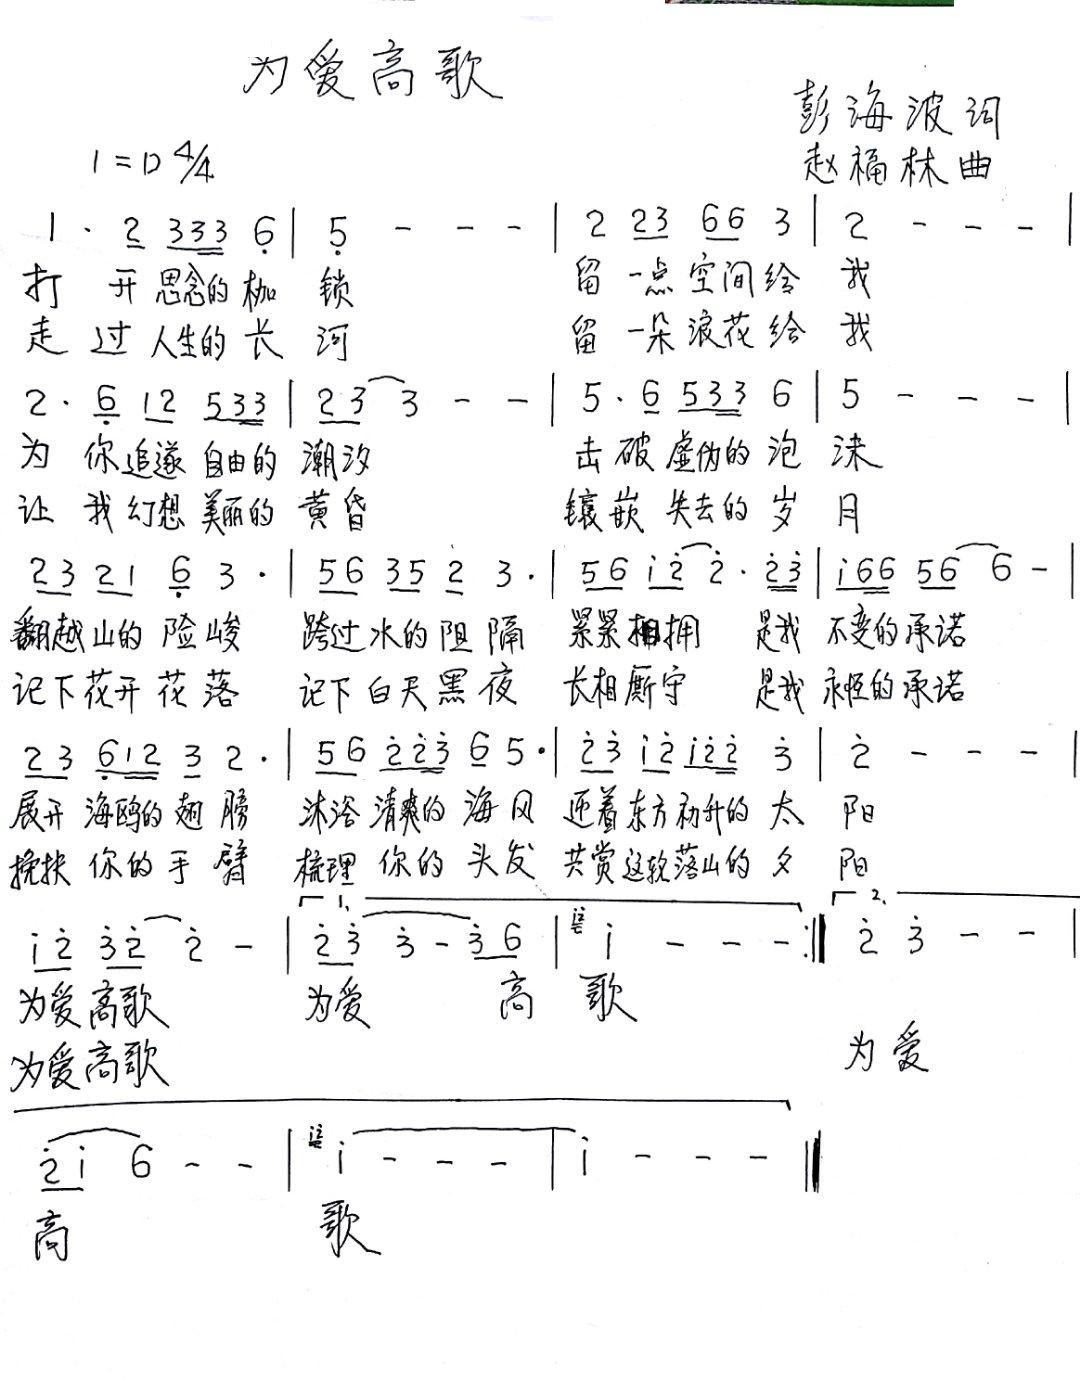 为爱高歌
彭海波词
1=D 4/4
赵福林曲
1 · 2 333 6 | 5 - - - | 2 23 66 3 | 2 - - - |
打 开 思念的 枷 锁 留 一点 空间 给 我
走 过 人生的 长 河 留 一朵 浪花 给 我
2 · 6 12 533 | 23 3 - - | 5 · 6 533 6 | 5 - - - |
为 你 追逐 自由的 潮汐 击 破 虚伪的 泡 沫
让 我 幻想 美丽的 黄昏 镶 嵌 失去的 岁 月
23 21 6 3 · | 56 35 2 3 · | 56 i2 2 · 23 | i66 56 6 - |
翻越 山的 险 峻 跨过 水的 阻 隔 紧紧 相拥 是我 不变的 承诺
记下 花开 花 落 记下 白天 黑 夜 长相 厮守 是我 永恒的 承诺
23 612 3 2 · | 56 223 6 5 · | 23 i2 i22 3 | 2 - - - |
展开 海鸥的 翅 膀 沐浴 清爽的 海 风 迎着 东方 初升的 太 阳
挽扶 你的 手 臂 梳理 你的 头 发 共赏 这轮 落山的 夕 阳
1. 2.
i2 32 2 - | 23 3 - 36 | i - - - :| 2 3 - - |
为爱 高歌 为爱 高 歌
为爱 高歌 为 爱
2i 6 - - | i - - - | i - - - ||
高 歌